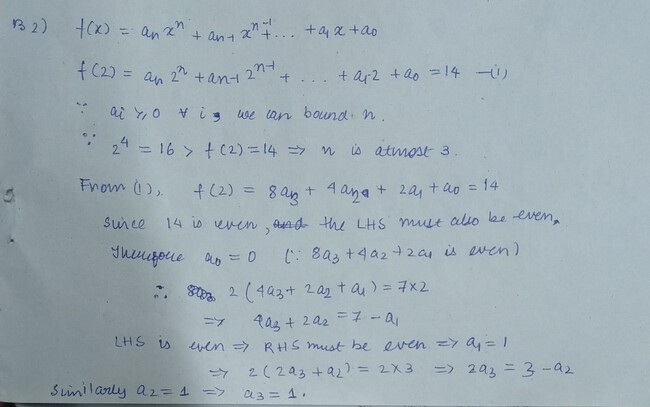 B 2) f(x) = aₙxⁿ + aₙ₋₁xⁿ⁻¹ + ... + a₁x + a₀
f(2) = aₙ2ⁿ + aₙ₋₁2ⁿ⁻¹ + ... + a₁2 + a₀ = 14 —(1)
∵ aᵢ ≥ 0 ∀ i, we can bound n.
∵ 2⁴ = 16 > f(2) = 14 ⇒ n is atmost 3.
From (1), f(2) = 8a₃ + 4a₂ + 2a₁ + a₀ = 14
Since 14 is even, the LHS must also be even.
Therefore a₀ = 0 (∵ 8a₃ + 4a₂ + 2a₁ is even)
∴ 2(4a₃ + 2a₂ + a₁) = 7×2
⇒ 4a₃ + 2a₂ = 7 - a₁
LHS is even ⇒ RHS must be even ⇒ a₁ = 1
⇒ 2(2a₃ + a₂) = 2×3 ⇒ 2a₃ = 3 - a₂
Similarly a₂ = 1 ⇒ a₃ = 1.